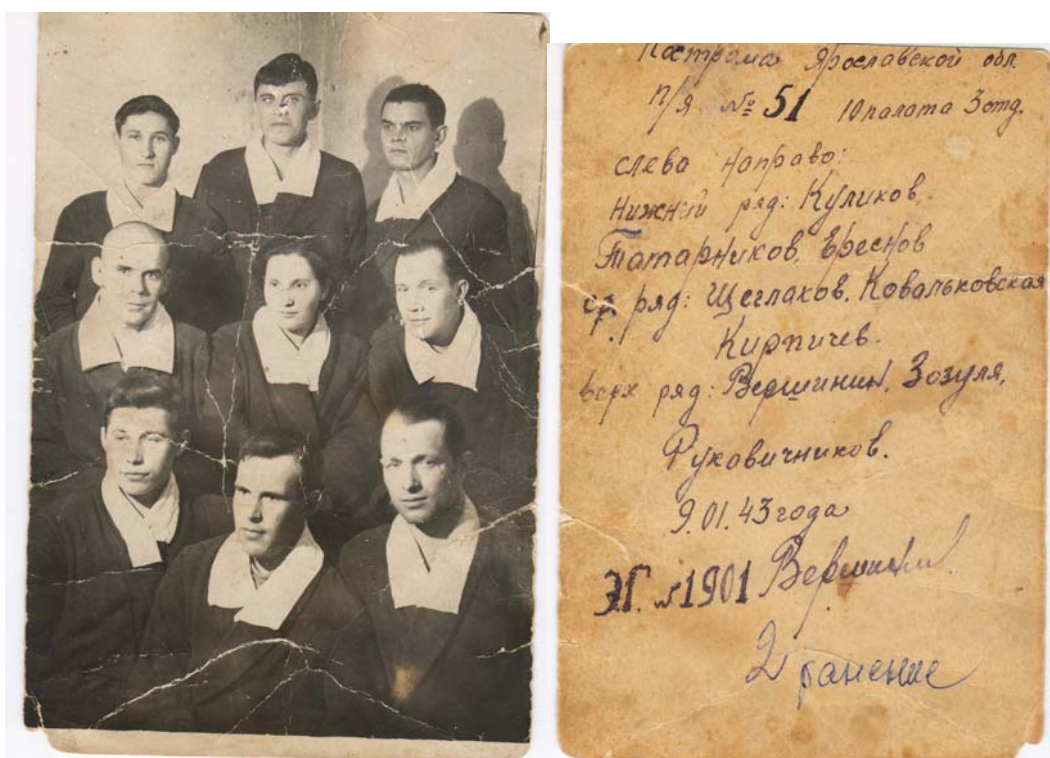 Кострома Ярославской обл.
п/я № 51 10 палата 3 отд.
слева направо:
Нижний ряд: Куликов,
Татарников, Ереснов
ср. ряд: Щеглаков, Ковальковская
Кирпичев.
верх ряд: Вершинин, Зозуля,
Руковичников.
9.01.43 года
ЭГ. №1901 Вершинин.
2 ранение